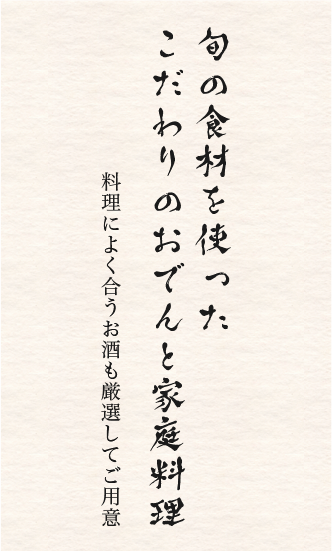 旬の食材を使った
こだわりのおでんと家庭料理
料理によく合うお酒も厳選してご用意